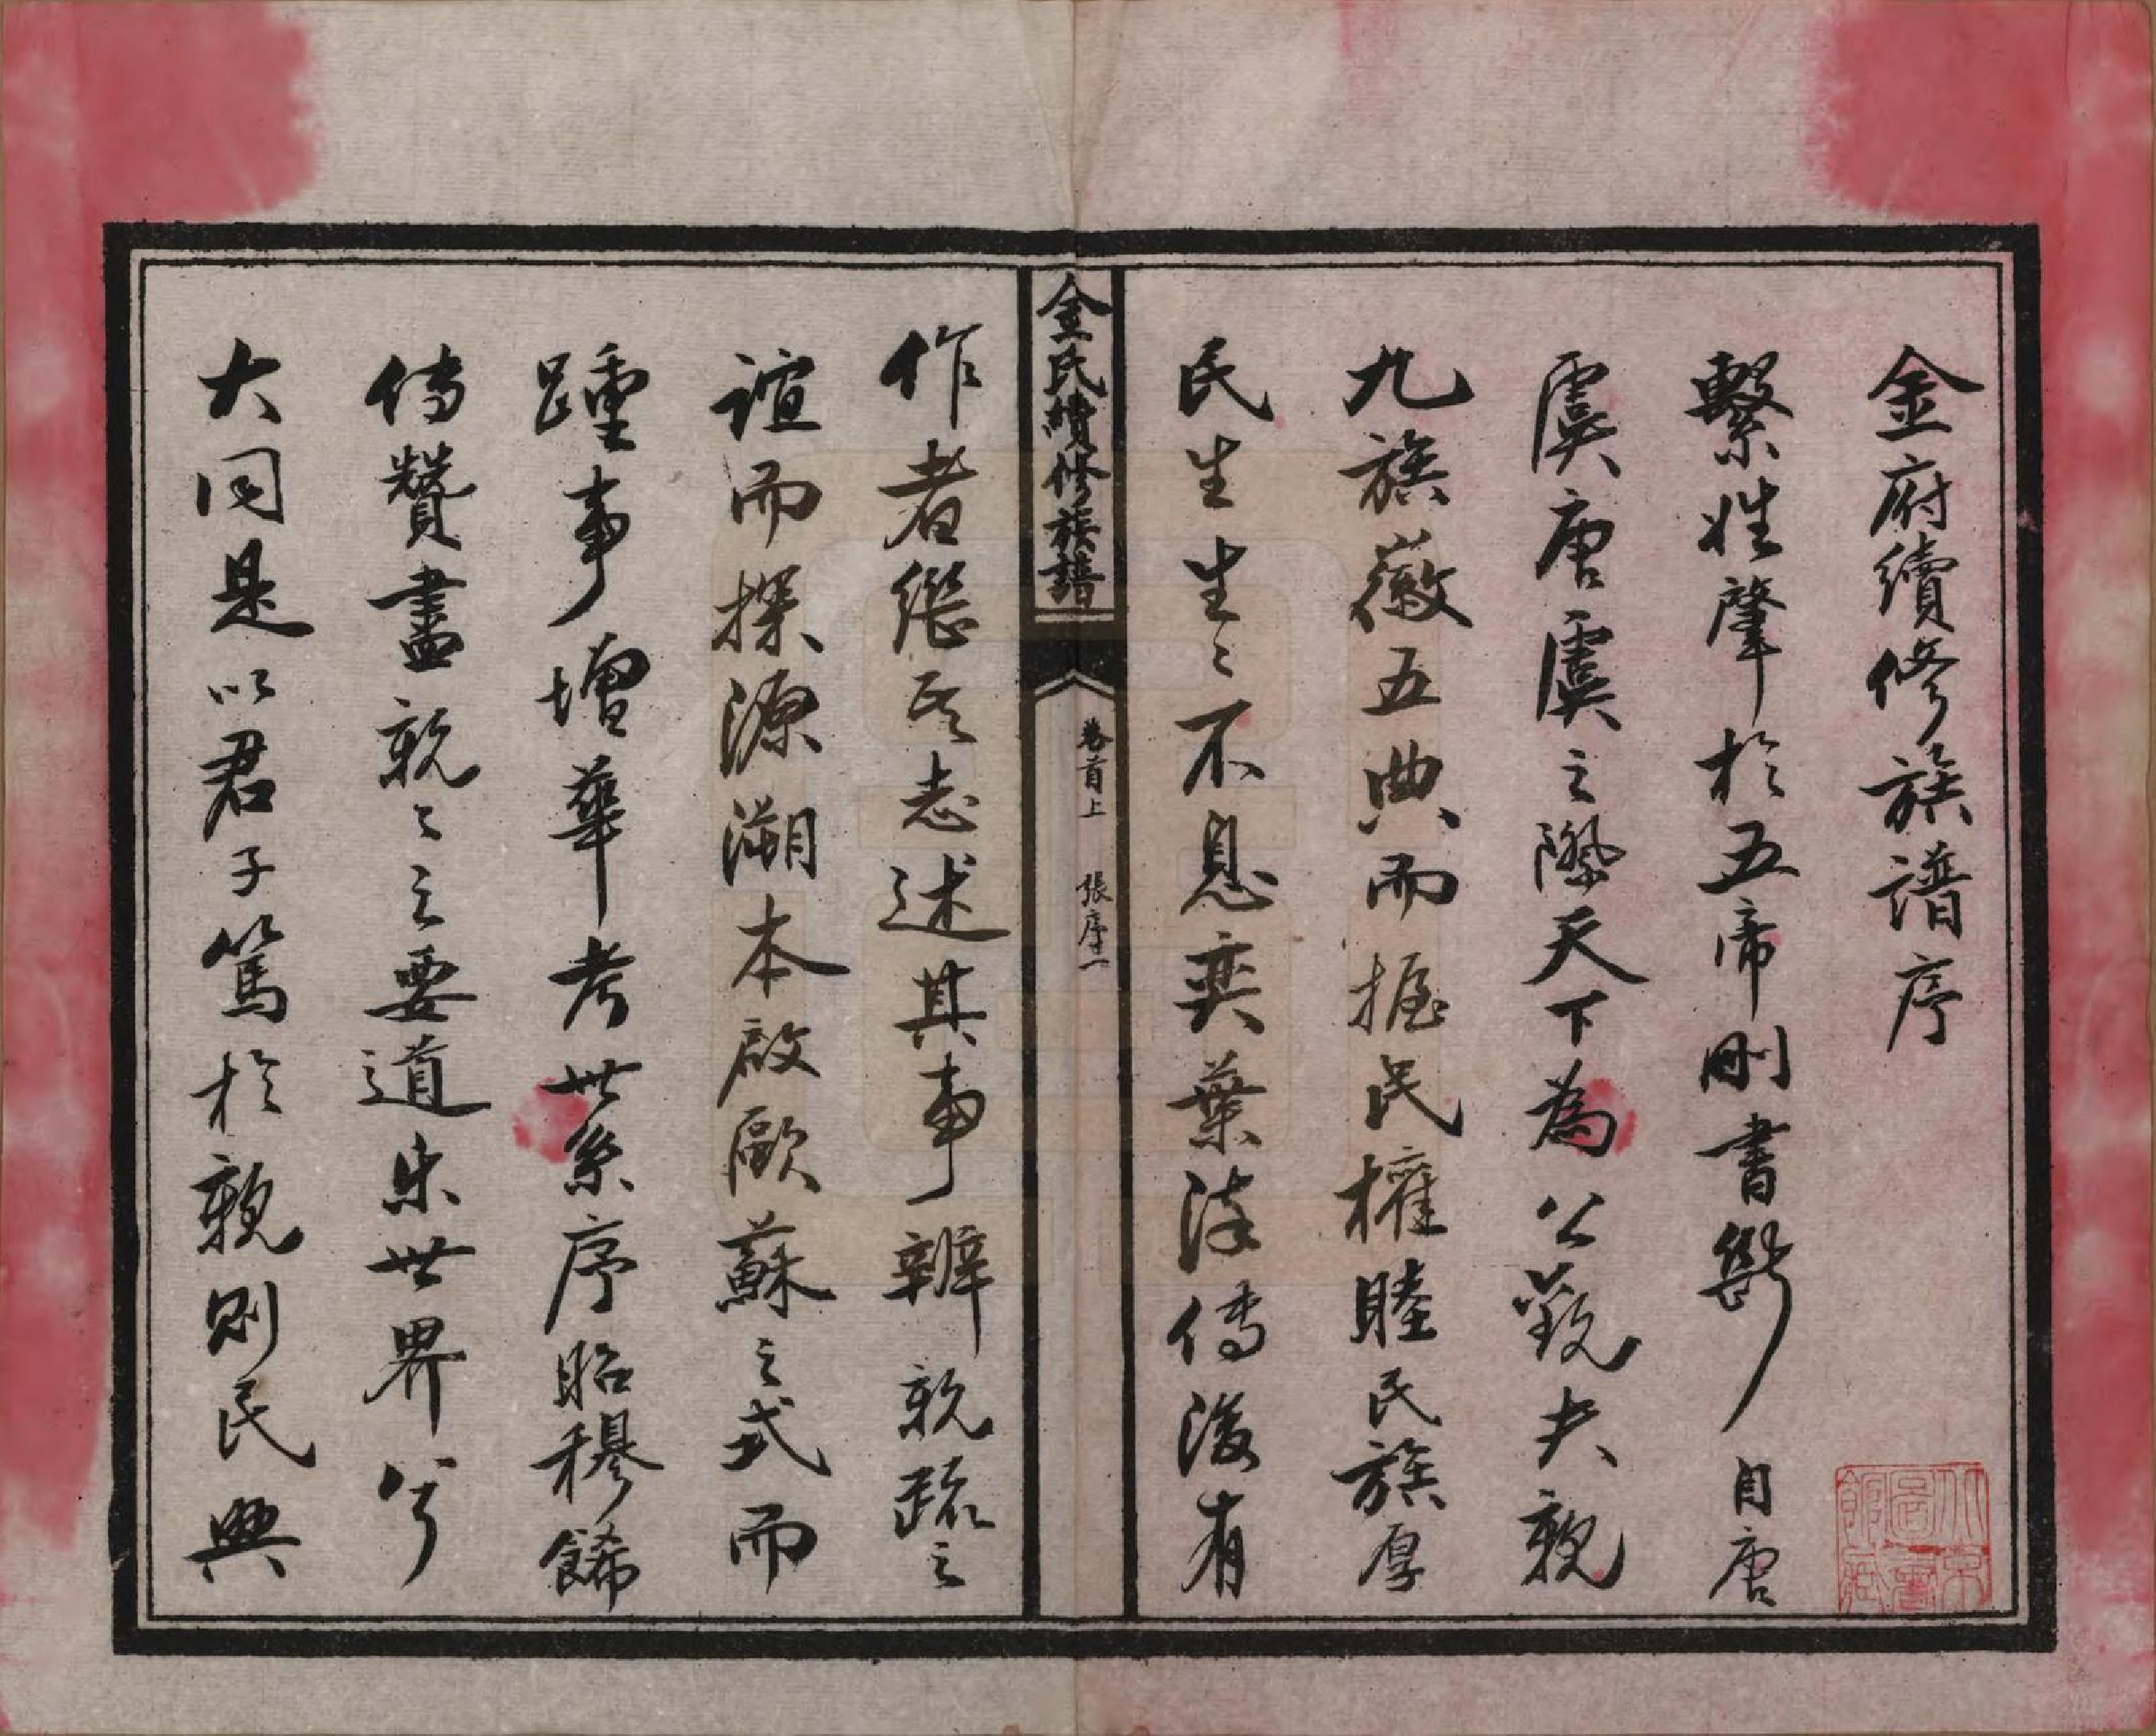 金府續修族譜序
繫姓肇於五帝刪書斷自唐
虞唐虞之際天下為公觀夫親
九族徽五典而握民權睦民族厚
民生生〻不息奕葉流傳後有
金氏續修族譜
卷首上 張序一
作者繼其志述其事辨親疏之
誼而探源溯本啟歐蘇之式而
踵事增華考世系序昭穆餙
傳贊盡親〻之要道宋世界兮
大同是以君子篤於親則民興
北京圖書館藏